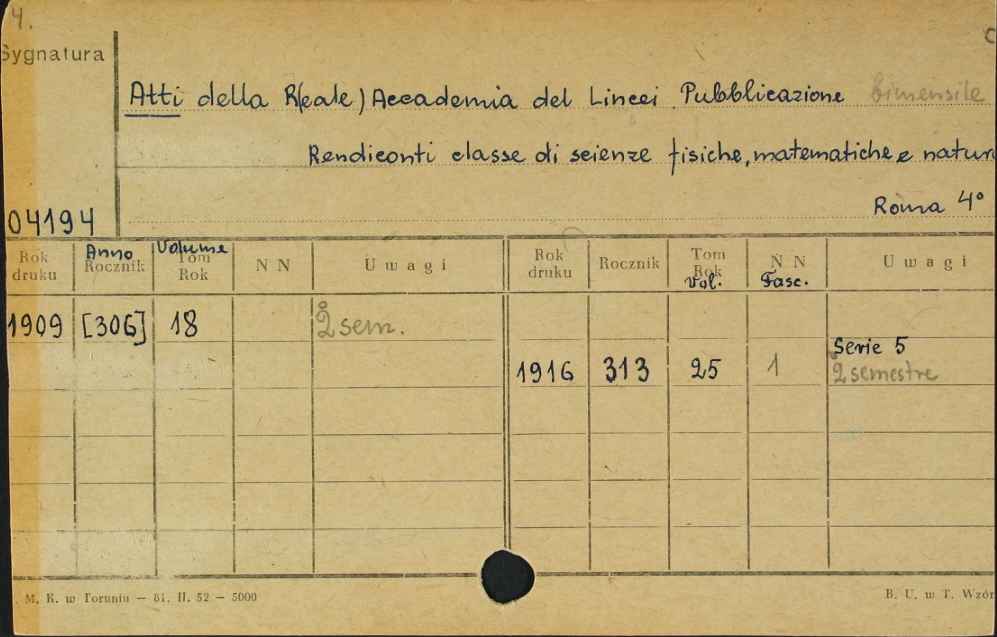 4.
Sygnatura
Atti della R(eale) Accademia dei Lincei Pubblicazione bimensile
Rendiconti classe di scienze fisiche, matematiche e natur
Roma 4°
04194
Rok druku Anno Rocznik Volume Tom Rok N N Uwagi Rok druku Rocznik Tom Rok Vol. N N Fasc. Uwagi
1909 [306] 18 2° sem.
Serie 5
1916 313 25 1 2 semestre
M. K. w Toruniu — 61. II. 52 — 5000
B. U. w T. Wzór